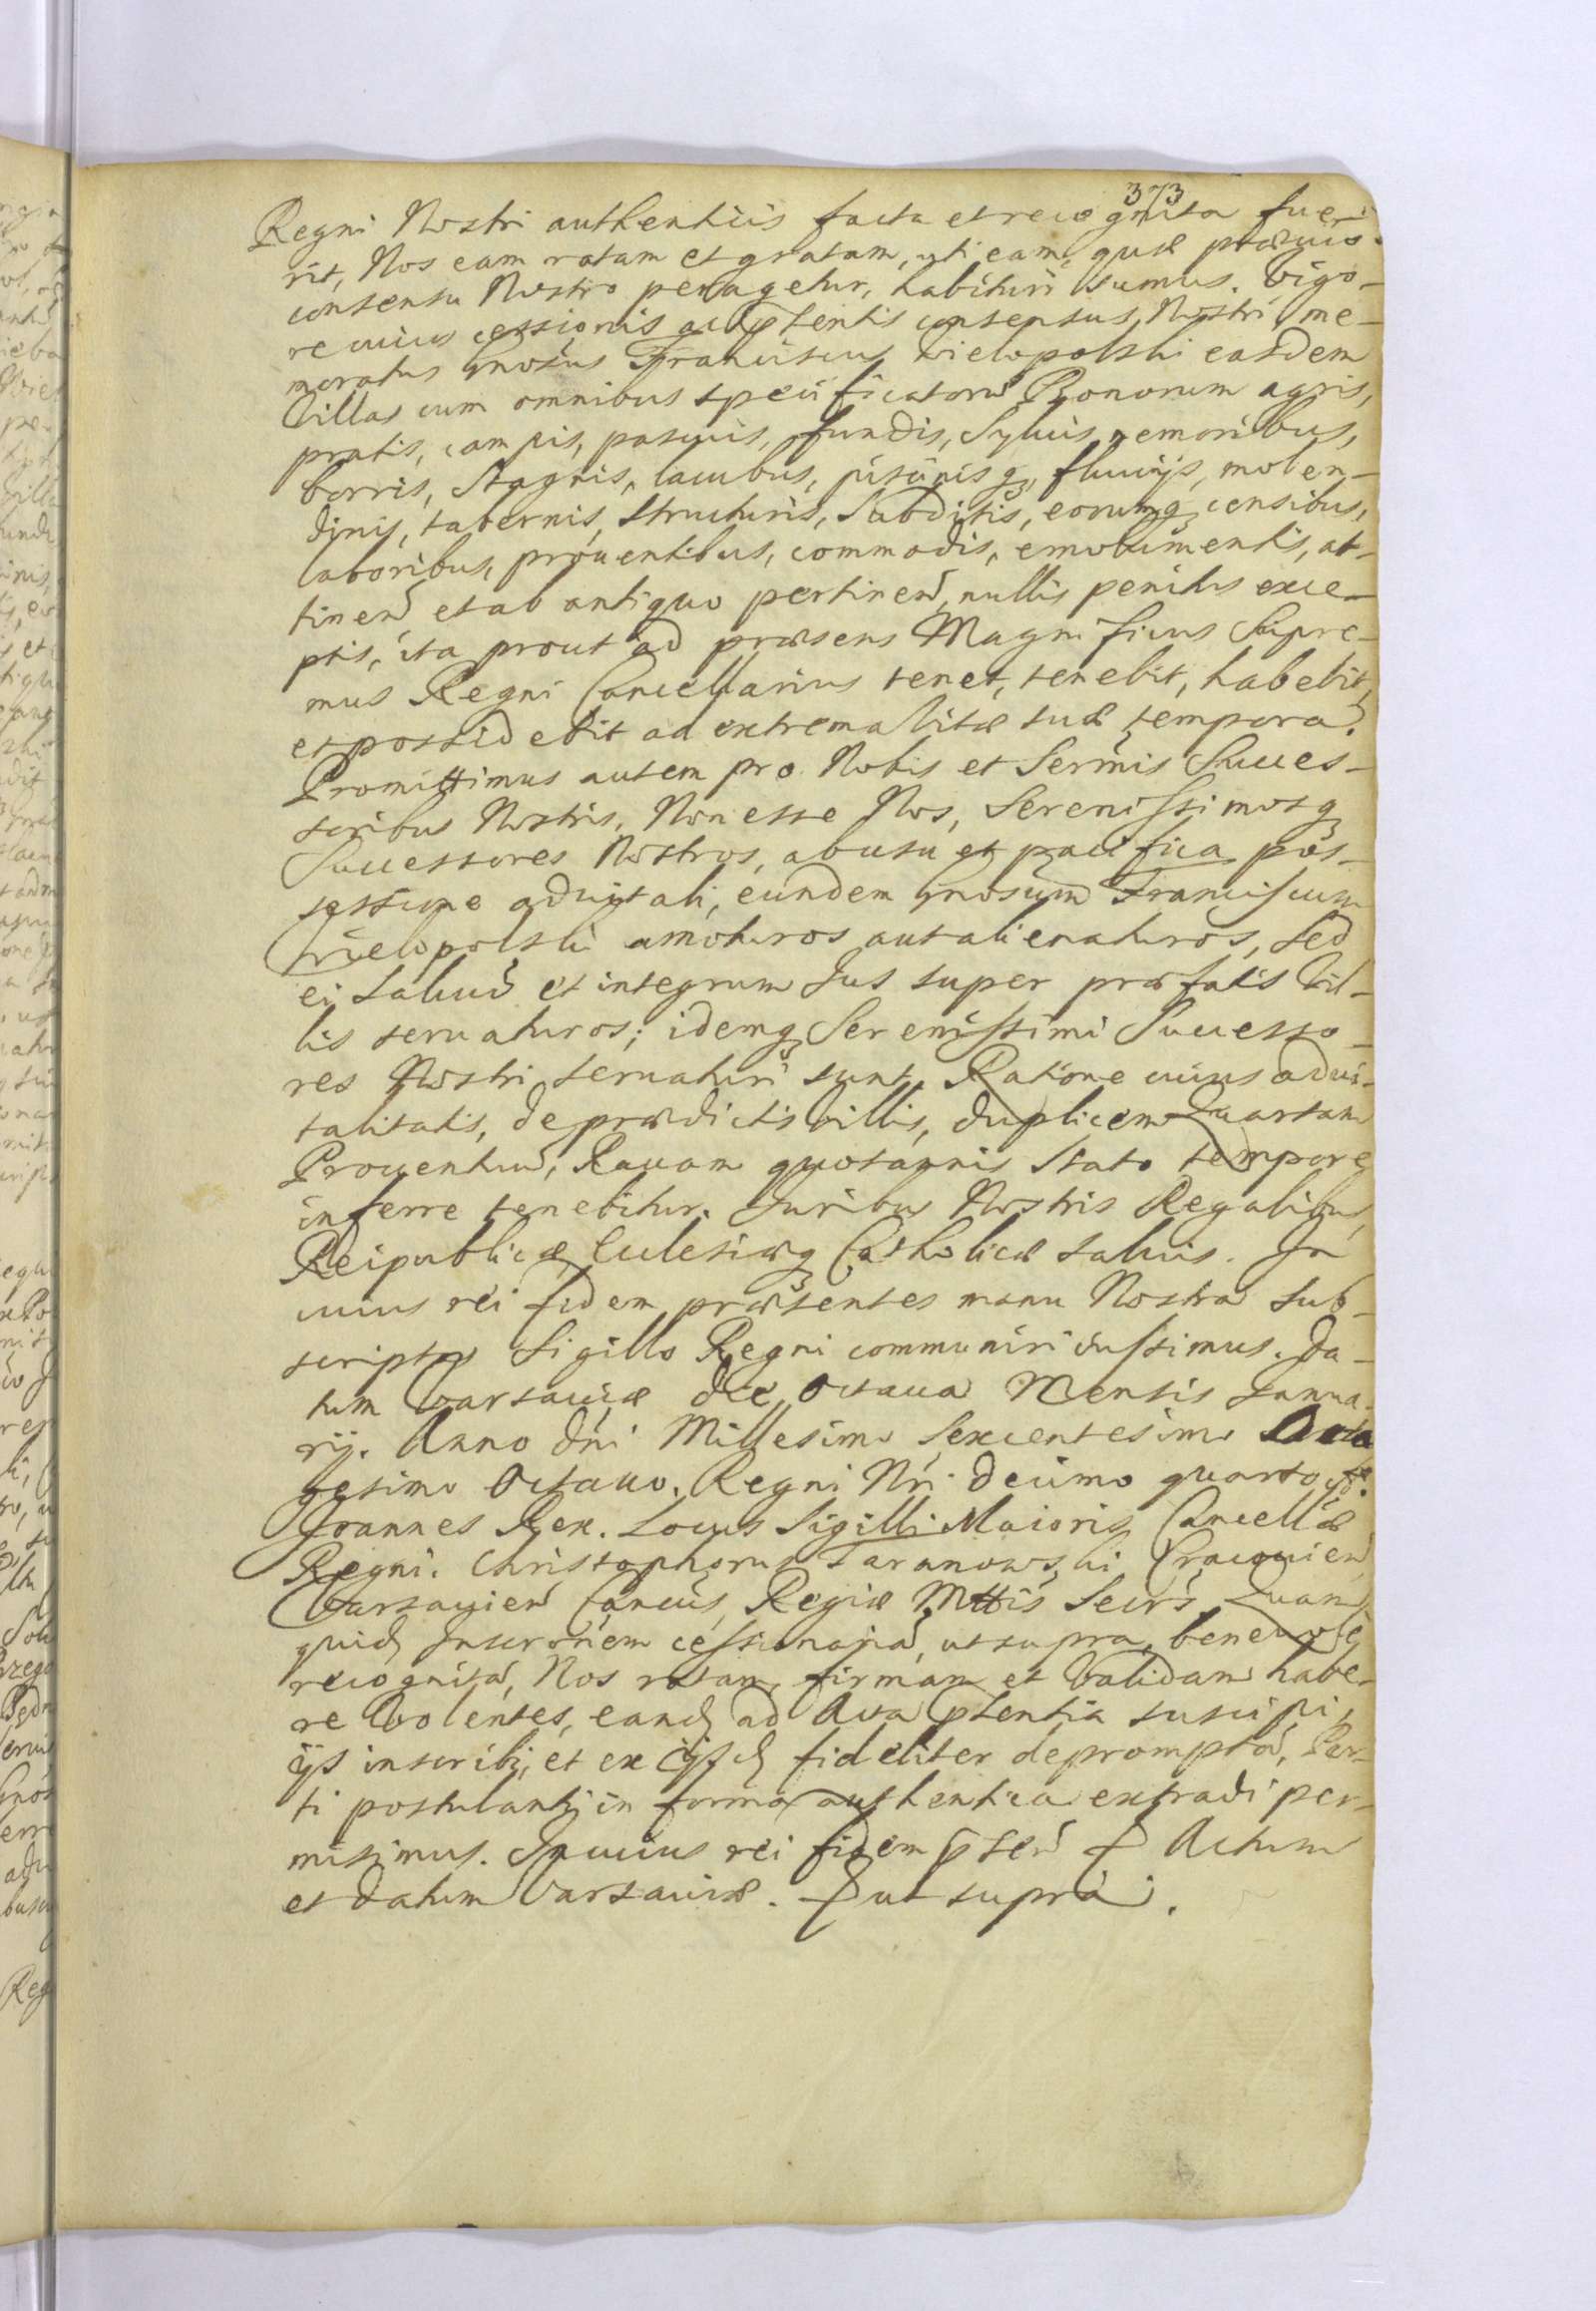 373
Regni Nostri authenticis facta et recognita fue-
rit, Nos eam ratam et gratam, uti eam, quæ prævio
consensu Nostro peragetur, habituri sumus. Vigo-
re cuius cessionis ac ptentis consensus Nostri me-
moratus Gnosus Franciscus Wielopolski easdem
Villas cum omnibus specificatorũ Bonorum agris,
pratis, campis, pascuis, fundis, Sylvis, nemoribus,
borris, Stagnis, lacubus, piscinisq, fluvijs, molen-
dinis, tabernis, structuris, Subditis, eorumq censibus,
laboribus, proventibus, commodis, emolumentis, at-
tineñ et ab antiquo pertineñ, nullis penitus exce-
ptis, ita prout ad præsens Magnificus Supre-
mus Regni Cancellarius tenet, tenebit, habebit,
et possidebit ad extrema vitæ suæ tempora.
Promittimus autem pro Nobis et Sermis Succes-
soribus Nostris, Non esse Nos, Serenissimosq
Successores Nostros, ab usu et pacifica pos-
sessione advitali, eundem Gnosum Franciscum
Wielopolski amoturos aut alienaturos, sed
ei salvũ et integrum Jus super præfatis Vil-
lis servaturos; idemq Serenissimi Successo-
res Nostri servaturi sunt. Ratione cuius advi-
talitatis, de prædictis villis, duplicem Quartam
Proventuũ, Ravam quotannis stato tempore
inferre tenebitur. Juribus Nostris Regalibus,
Reipublicæ Ecclesiæq Catholicæ salvis. In
cuius rei fidem præsentes manu Nostra sub-
scriptas Sigillo Regni communiri iussimus. Da-
tum Varsaviæ die Octava Mensis Janua-
rij. Anno Dni Millesimo Sexcentesimo Octua
gesimo Octavo. Regni Nri decimo quarto
Joannes Rex. Locus Sigilli Maioris Cancellæ
Regni. Christophorus Taranowski Cracovień
Varsavień Cancus, Regiæ Mttis Secrs. Quam
quid Inscronem cessionariã, ut supra, benevole
recognitã, Nos ratam, firmam et Validam habe-
re Volentes, eand ad Acta ptentia suscipi,
ijs inscribi, et ex ijsd fideliter depromptã, Par-
ti postulanti in forma authentica extradi per-
misimus. In cuius rei fidem pteñ Actum
et datum Varsaviæ. ut supra.